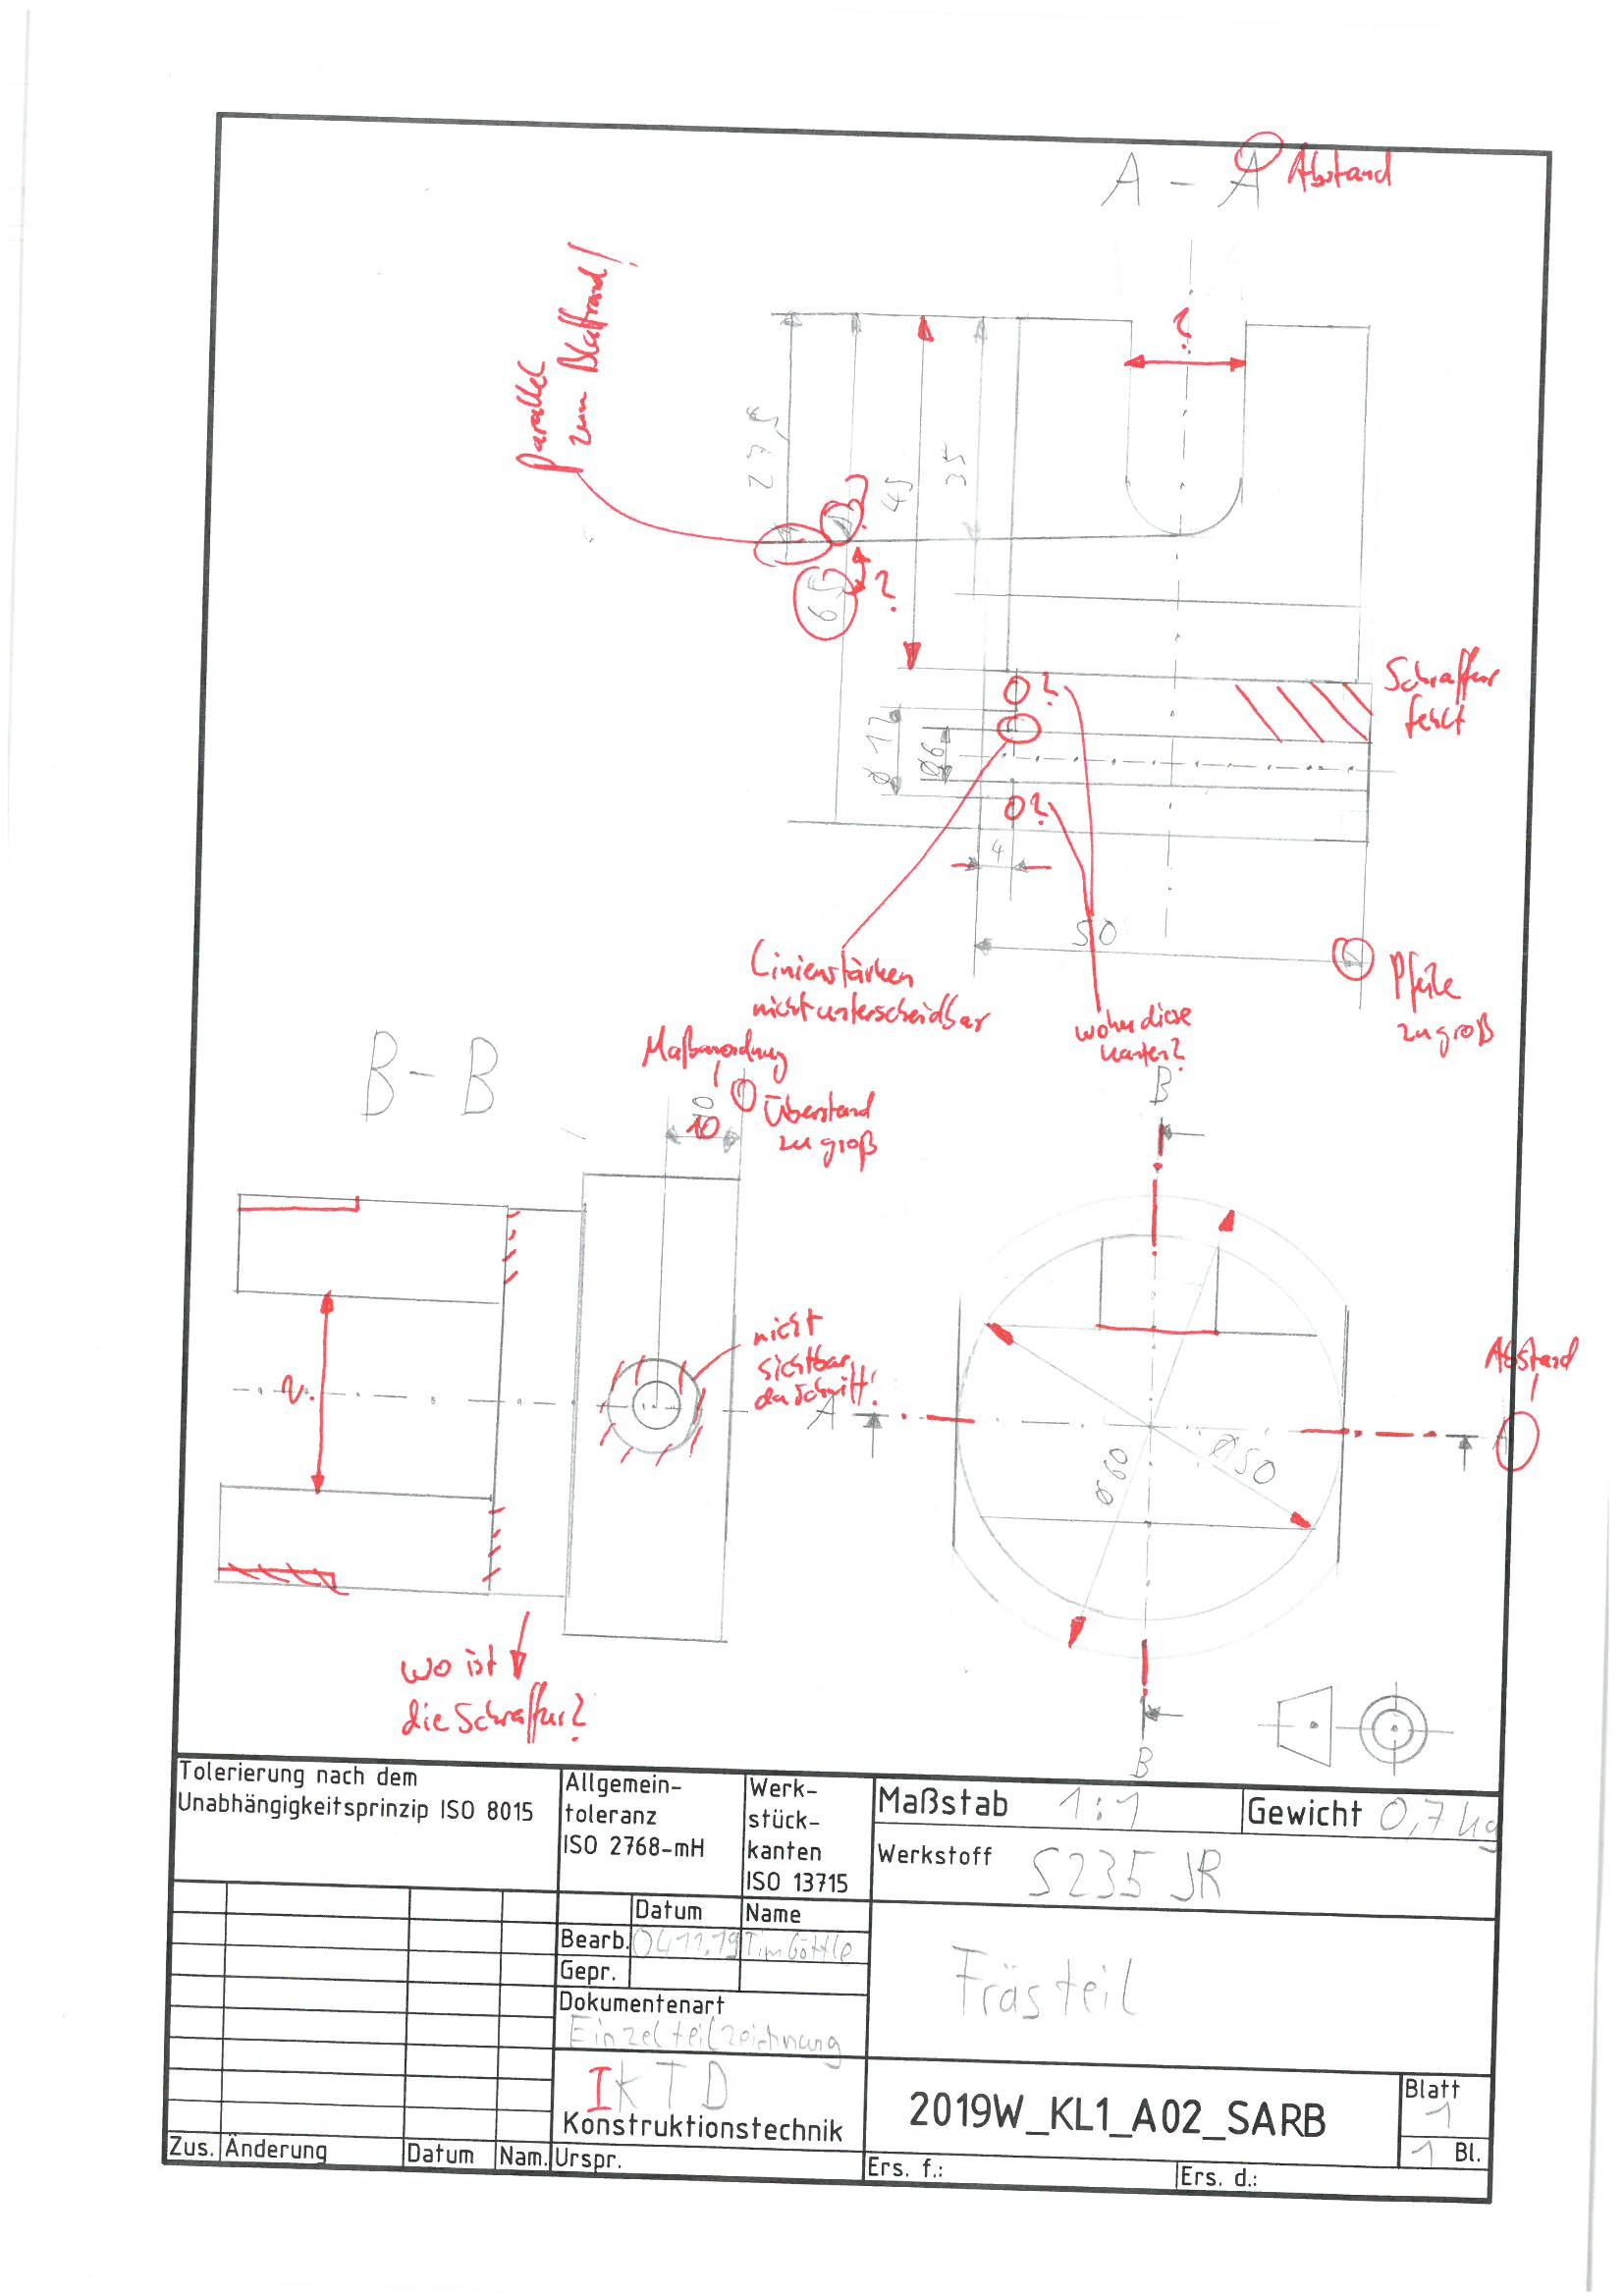 A - A
Abstand
parallel
zum Blattrand!
?
27,5
45
35
?
65
?
Schraffur
fehlt
0?
Ø 12
Ø6
0?
4
50
Linienstärken
nicht unterscheidbar
Pfeile
zu groß
woher diese
Kanten?
B - B
Maßanordnung
!
10
10
Überstand
zu groß
B
nicht
sichtbar
da Schnitt!
Abstand
!
?
A
Ø 60
Ø 50
wo ist
die Schraffur?
B
Tolerierung nach dem
Unabhängigkeitsprinzip ISO 8015
Allgemein-
toleranz
ISO 2768-mH
Werk-
stück-
kanten
ISO 13715
Maßstab 1:1
Gewicht 0,7 kg
Werkstoff S235 JR
Datum Name
Bearb. 04.11.19 Tim Göttle
Gepr.
Dokumentenart
Einzelteilzeichnung
Frästeil
IKTD
Konstruktionstechnik
2019W_KL1_A02_SARB
Blatt
1
1 Bl.
Zus. Änderung Datum Nam. Urspr. Ers. f.: Ers. d.: